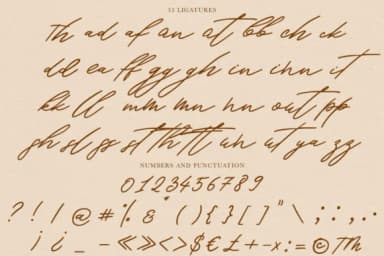 53 LIGATURES
Th ad af an at bb ch ck
dd ea ff gg gh in inn it
kk ll mm mn nn out pp
sh sl ss st th tt un ut ya zz
NUMBERS AND PUNCTUATION
0123456789
? ! / @ # % & * ( ) { } [ ] " \ ; : , .
¡ ¿ _ - « » < > $ € £ + - x : = © TM